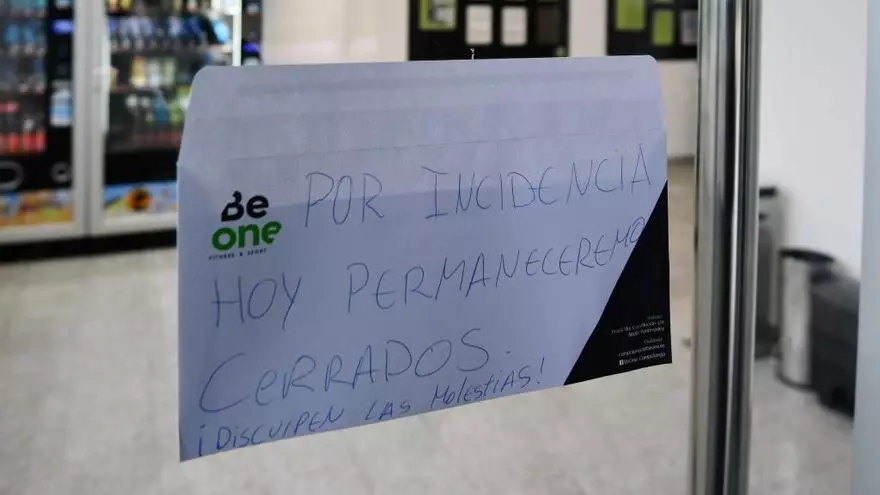 Be
one
FITNESS & SPORT
POR INCIDENCIA
HOY PERMANECEREMO
CERRADOS.
¡DISCULPEN LAS MOLESTIAS!